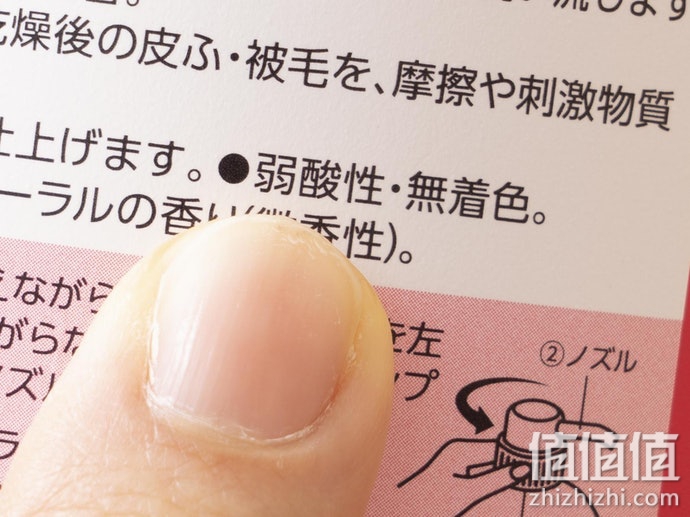 燥後の皮ふ・被毛を、摩擦や刺激物質
上げます。●弱酸性・無着色。
ーラルの香り(微香性)。
えながら
がら を左
ノズル ップ
②ノズル
ラ
值值值
zhizhizhi.com